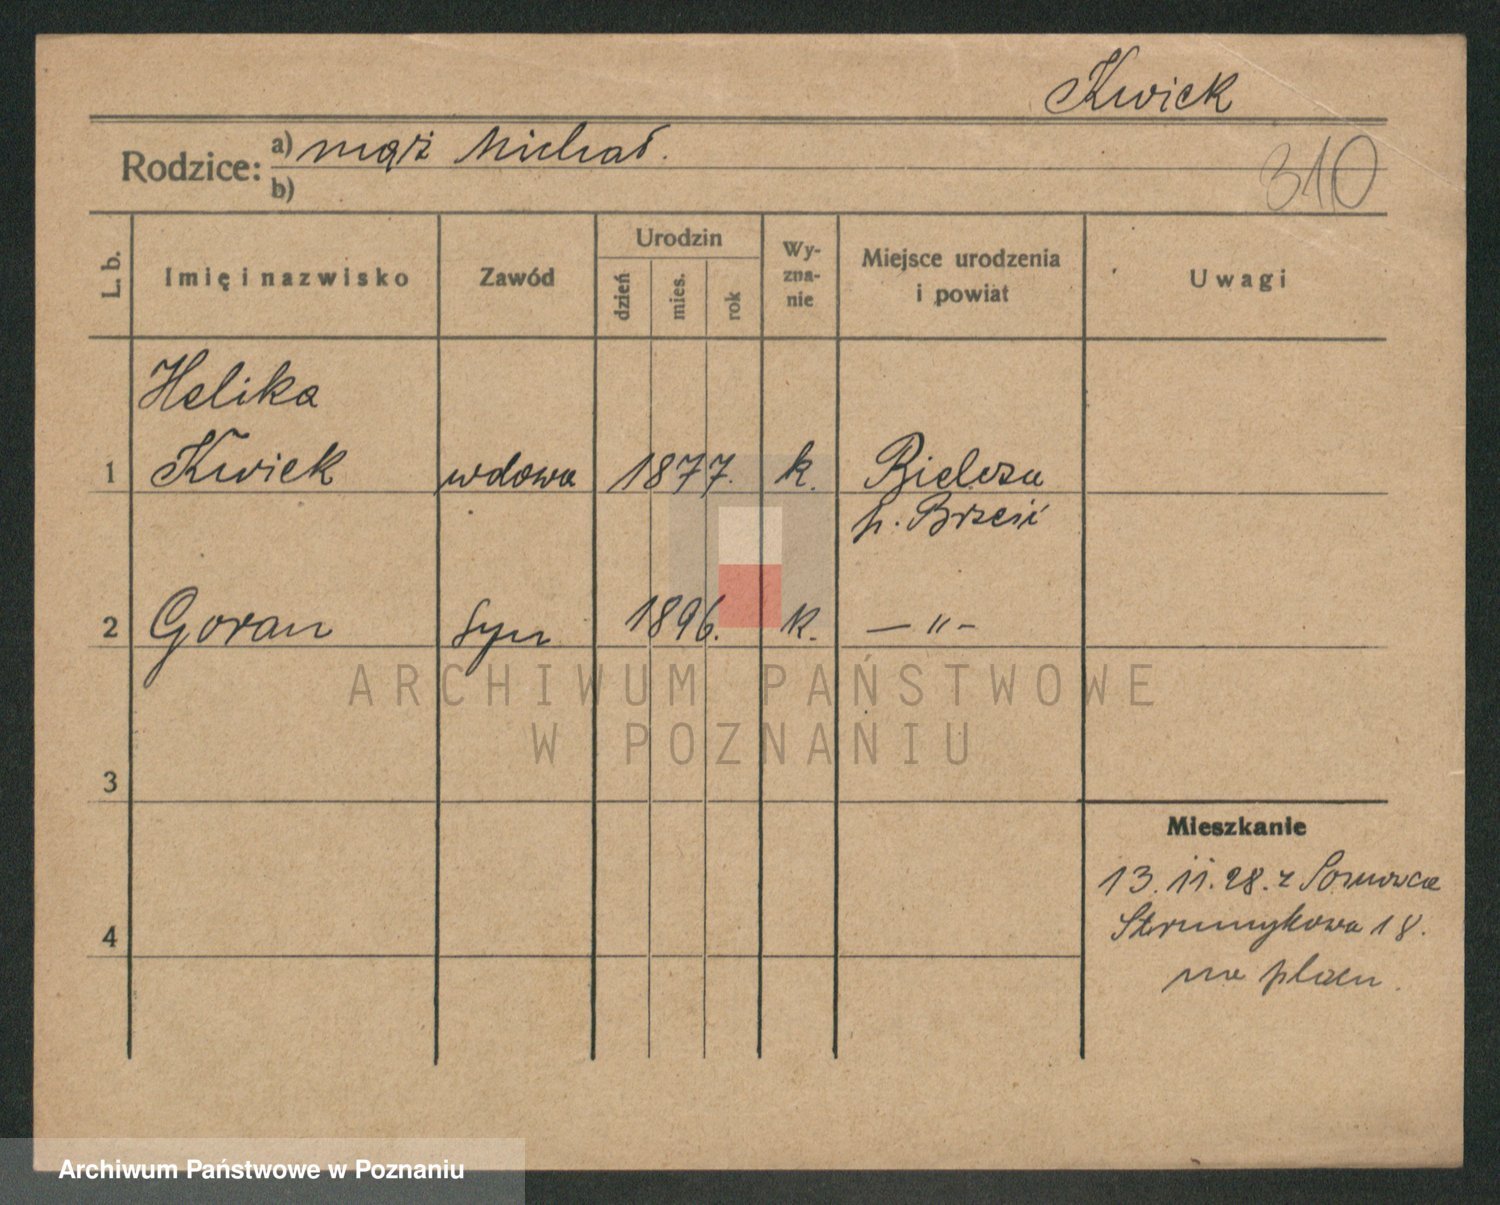 Kwiek
310
Rodzice: a) mąż Michał.
b)
L. b.
Imię i nazwisko
Zawód
Urodzin
dzień
mies.
rok
Wy-
zna-
nie
Miejsce urodzenia
i powiat
Uwagi
Helika
1 Kwiek wdowa 1877. k. Bielcza
p. Brześć
2 Goran syn 1896. k. — „ —
3
4
Mieszkanie
13.11.28. z
Strumykowa 18.
na placu.
ARCHIWUM PAŃSTWOWE
W POZNANIU
Archiwum Państwowe w Poznaniu